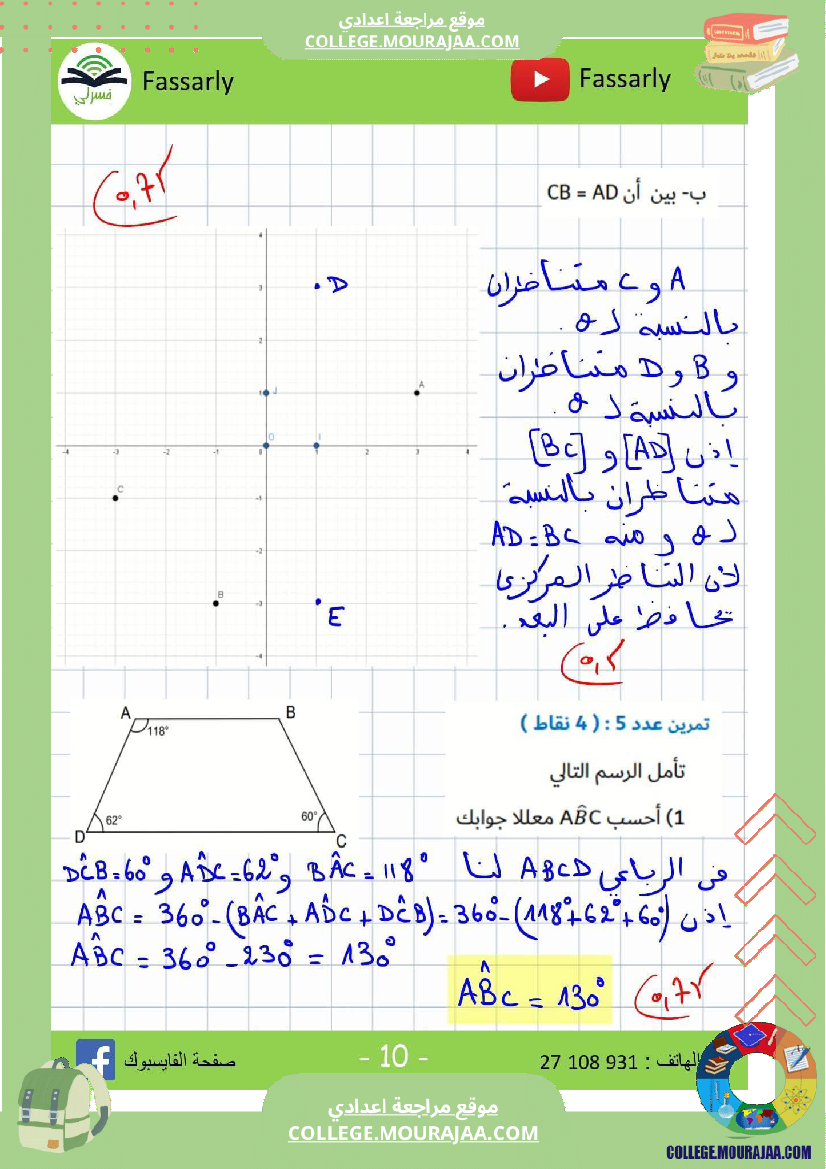 موقع مراجعة اعدادي
COLLEGE.MOURAJAA.COM
Fassarly
فسرلي
Fassarly
0,75
ب- بين أن CB = AD
4
3
2
1
-4 -3 -2 -1 0 1 2 3 4
-1
-2
-3
-4
D
J
A
O
I
C
B
E
A و C متناظران
بالنسبة لـ O.
و B و D متناظران
بالنسبة لـ O.
إذن [AD] و [BC]
متناظران بالنسبة
لـ O و منه AD=BC
لأن التناظر المركزي
يحافظ على البعد.
A
B
118°
62°
60°
D
C
تمرين عدد 5 : ( 4 نقاط )
تأمل الرسم التالي
1) أحسب AB̂C معللا جوابك
في الرباعي ABCD لنا BÂC = 118° و AD̂C = 62° و DĈB = 60°
إذن AB̂C = 360° - (BÂC + AD̂C + DĈB) = 360° - (118° + 62° + 60°)
AB̂C = 360° - 230° = 130°
AB̂C = 130°
0,75
صفحة الفايسبوك
- 10 -
الهاتف : 27 108 931
موقع مراجعة اعدادي
COLLEGE.MOURAJAA.COM
COLLEGE.MOURAJAA.COM